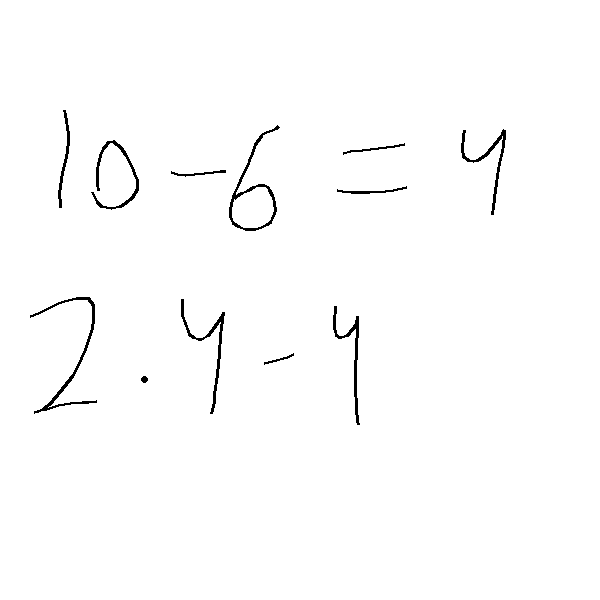 10 - 6 = 4
2 . 4 - 4